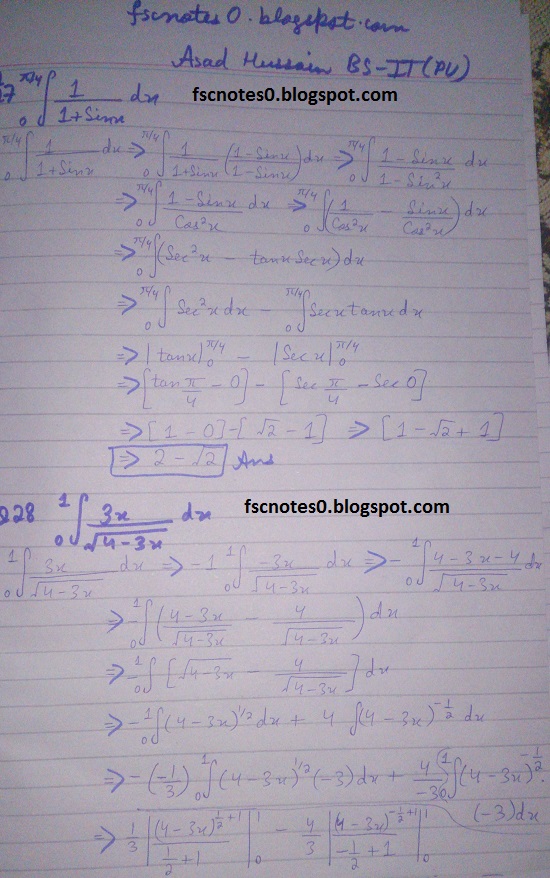 fscnotes0.blogspot.com
Asad Hussain BS-IT(PU)
7 ∫₀^{π/4} 1/(1+Sinx) dx fscnotes0.blogspot.com
∫₀^{π/4} 1/(1+Sinx) dx ⇒ ∫₀^{π/4} 1/(1+Sinx) ((1-Sinx)/(1-Sinx)) dx ⇒ ∫₀^{π/4} (1-Sinx)/(1-Sin²x) dx
⇒ ∫₀^{π/4} (1-Sinx)/(Cos²x) dx ⇒ ∫₀^{π/4} (1/Cos²x - Sinx/Cos²x) dx
⇒ ∫₀^{π/4} (Sec²x - tanx Secx) dx
⇒ ∫₀^{π/4} Sec²x dx - ∫₀^{π/4} Secx tanx dx
⇒ |tanx|₀^{π/4} - |Secx|₀^{π/4}
⇒ [tan π/4 - 0] - [Sec π/4 - Sec 0]
⇒ [1 - 0] - [√2 - 1] ⇒ [1 - √2 + 1]
⇒ 2 - √2 Ans
fscnotes0.blogspot.com
Q28 ∫₀¹ 3x/√(4-3x) dx
∫₀¹ 3x/√(4-3x) dx ⇒ -1 ∫₀¹ -3x/√(4-3x) dx ⇒ - ∫₀¹ (4-3x-4)/√(4-3x) dx
⇒ -∫₀¹ ((4-3x)/√(4-3x) - 4/√(4-3x)) dx
⇒ -∫₀¹ [√(4-3x) - 4/√(4-3x)] dx
⇒ -∫₀¹ (4-3x)^{1/2} dx + 4 ∫(4-3x)^{-1/2} dx
⇒ -(-1/3) ∫₀¹ (4-3x)^{1/2} (-3) dx + 4/-3 ∫₀¹ (4-3x)^{-1/2} .
(-3) dx
⇒ 1/3 |(4-3x)^{1/2+1}/(1/2+1)|₀¹ - 4/3 |(4-3x)^{-1/2+1}/(-1/2+1)|₀¹